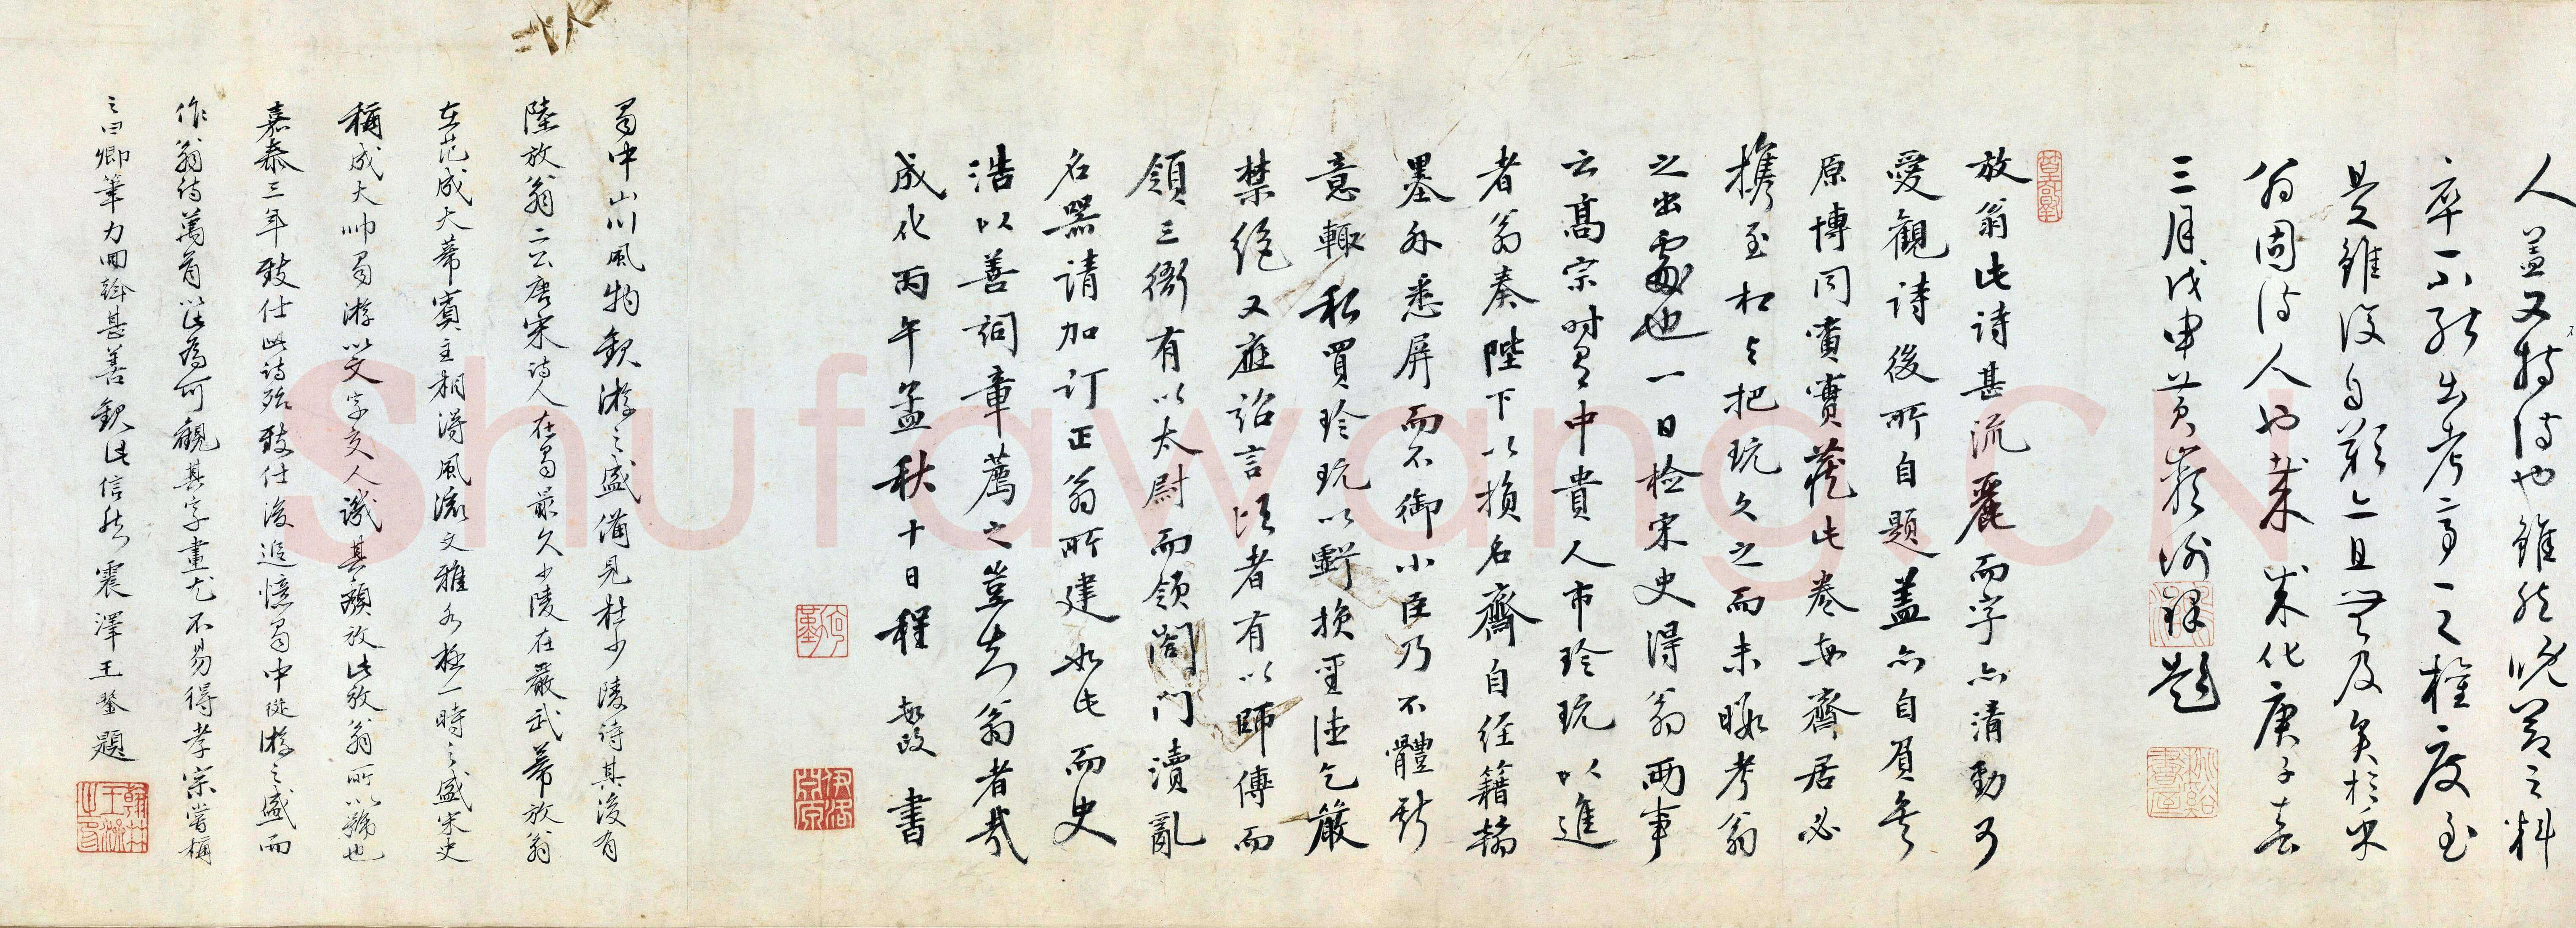 人蓋又特詩也雖然晚窘之料
卒不能出考亭之權度至
是雖復自艱亡且無及矣於乎
翁固詩人也哉成化庚子春
三月戊申黃巖謝鐸題
放翁此詩甚流麗而字亦清勁可
愛觀詩後所自題蓋亦自負矣
原博同寅寶藏此卷每齋居必
攜至相與把玩久之而未暇考翁
之出處也一日檢宋史得翁兩事
云高宗時有中貴人市珍玩以進
者翁奏陛下以損名齋自經籍翰
墨外悉屏而不御小臣乃不體聖
意輒私買珍玩以虧損聖德乞嚴
禁絕又應詔言頃者有以師傅而
領三衙有以太尉而領閤門瀆亂
名器請加訂正翁所建如此而史
浩以善詞章薦之豈知翁者哉
成化丙午孟秋十日程敏政書
蜀中山川風物觀游之盛備見杜少陵詩其後有
陸放翁二公唐宋詩人在蜀最久少陵在嚴武幕放翁
在范成大幕賓主相得風流文雅亦極一時之盛宋史
稱成大帥蜀游以文字交人譏其頹放此放翁所以號也
嘉泰三年致仕此詩殆致仕後追憶蜀中從游之盛而
作翁詩萬首此為可觀其字畫尤不易得孝宗嘗稱
之曰卿筆力回斡甚善觀此信然震澤王鏊題
Shufawang.CN